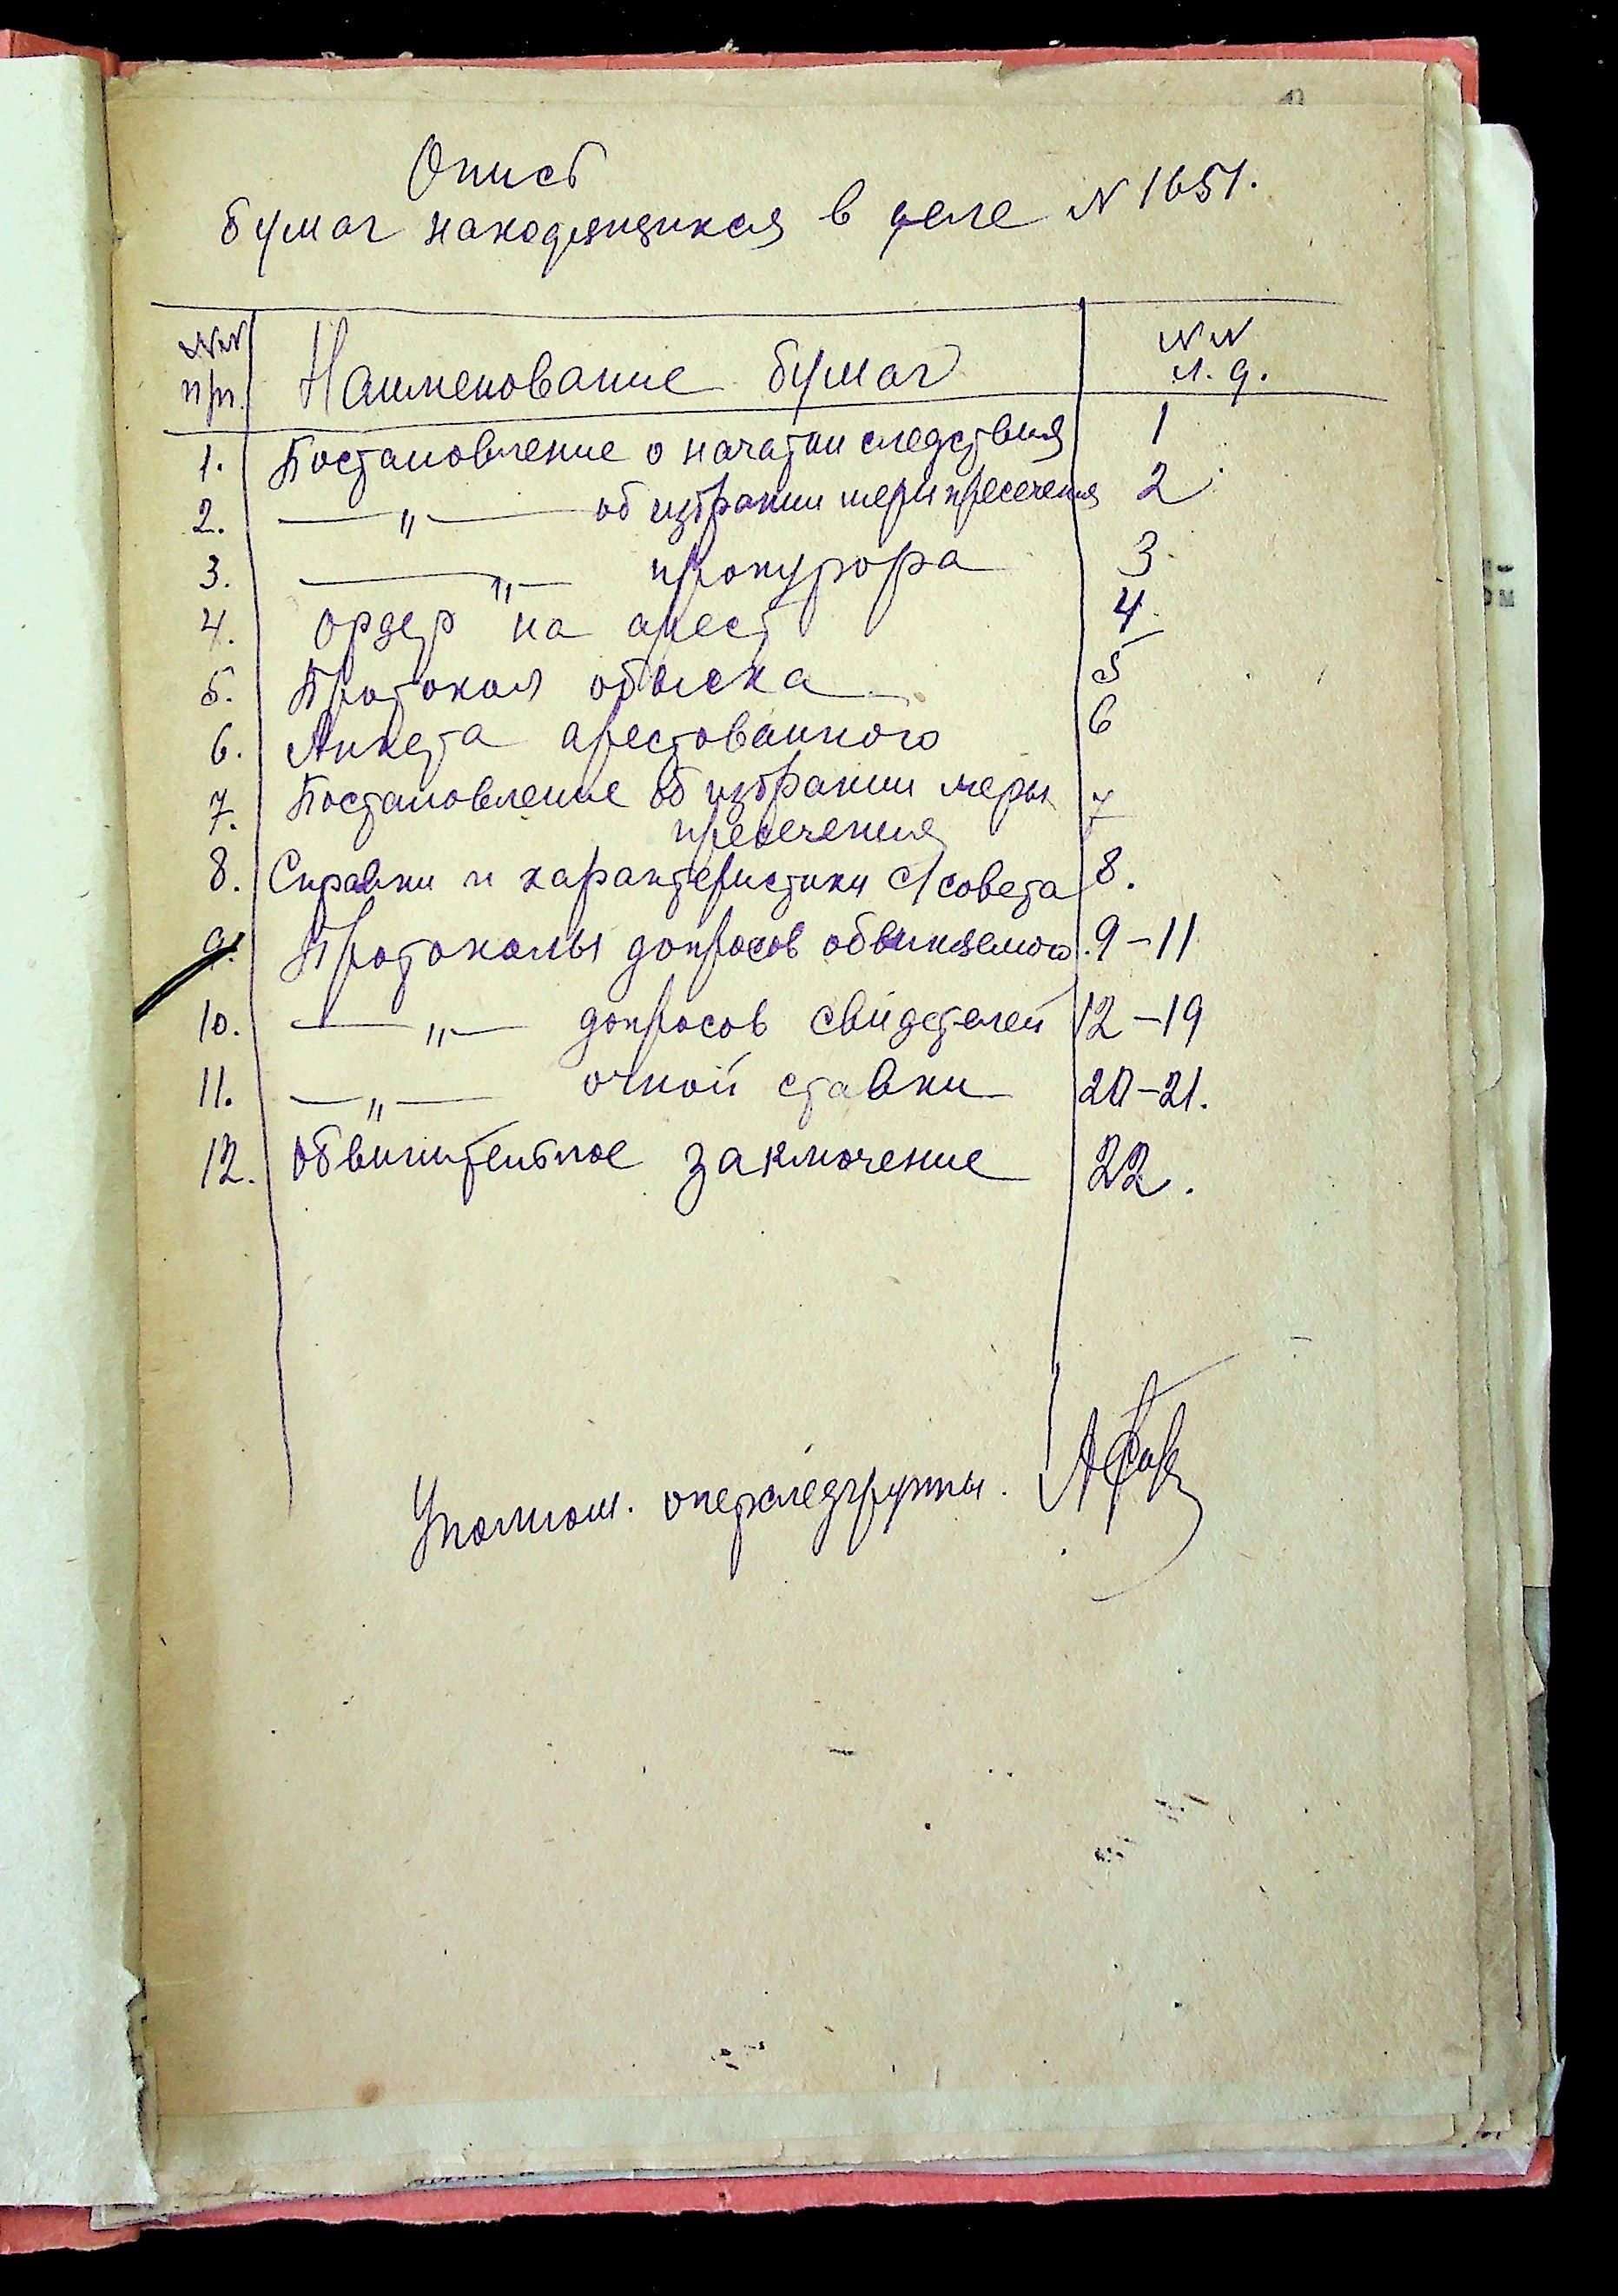 Опись
бумаг находящихся в деле № 1651.
№№ п/п. Наименование бумаг №№ л. д.
1. Постановление о начатии следствия 1
2. —„— об избрании меры пресечения 2
3. —„— прокурора 3
4. Ордер на арест 4
5. Протокол обыска 5
6. Анкета арестованного 6
7. Постановление об избрании меры 7
пресечения
8. Справки и характеристики с/совета 8.
9. Протоколы допросов обвиняемого. 9-11
10. —„— допросов свидетелей 12-19
11. —„— очной ставки 20-21.
12. Обвинительное заключение 22.
Уполном. оперследгруппы.